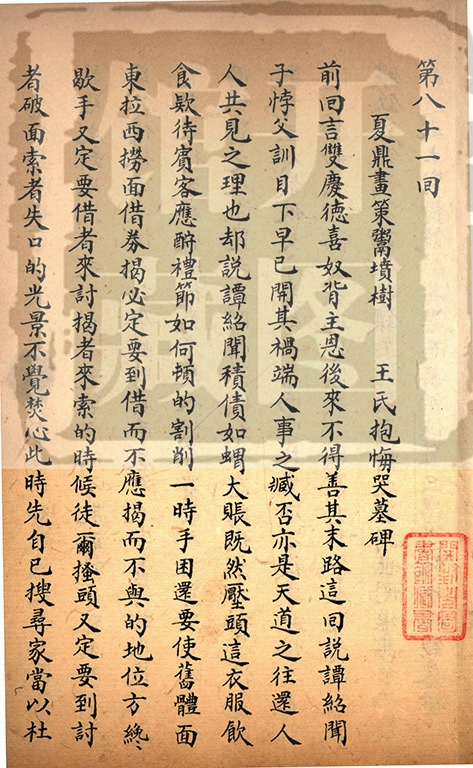 第八十一回
夏鼎畫策鬻墳樹　王氏抱悔哭墓碑
前回言雙慶德喜奴背主恩後來不得善其末路這回說譚紹聞
子悖父訓目下早已開其禍端人事之臧否亦是天道之往還人
人共見之理也却說譚紹聞積債如蝟大賬既然壓頭這衣服飲
食欵待賓客應酧禮節如何頓的割削一時手困還要使舊體面
東拉西撈面借券揭必定要到借而不應揭而不與的地位方纔
歇手又定要借者來討揭者來索的時候徒爾搔頭又定要到討
者破面索者失口的光景不覺焚心此時先自己搜尋家當以杜
開封圖書館藏書